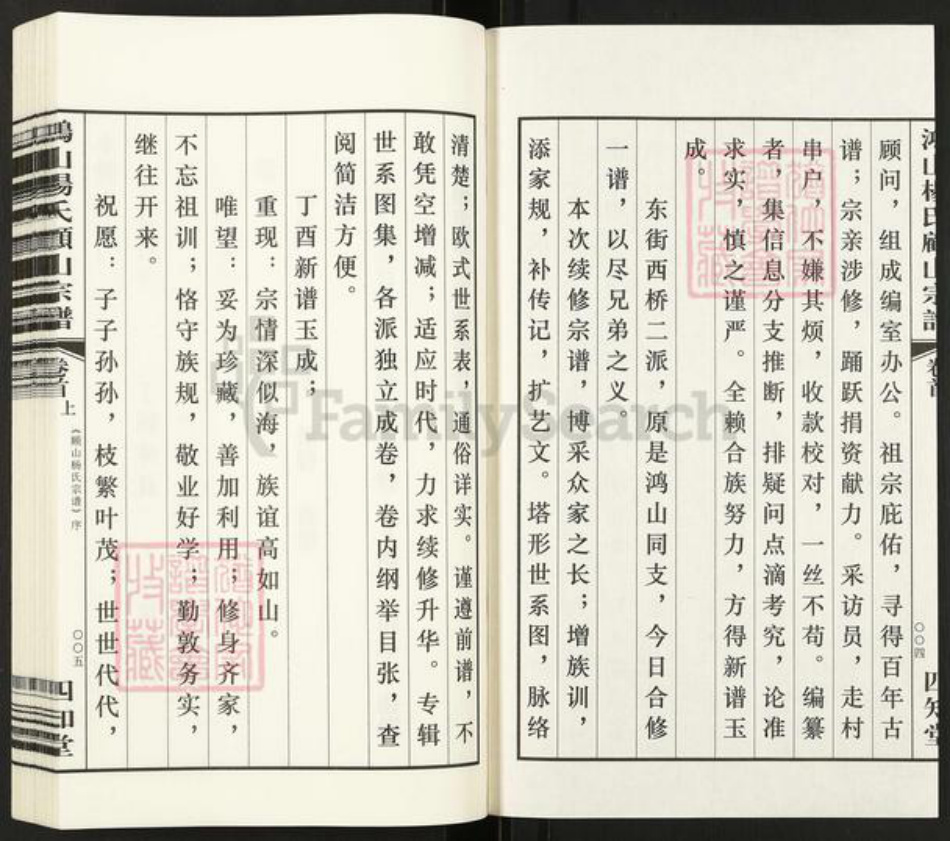 鸿山杨氏顾山宗谱
卷首
〇〇四
四知堂
顾问，组成编室办公。祖宗庇佑，寻得百年古
谱；宗亲涉修，踊跃捐资献力。采访员，走村
串户，不嫌其烦，收款校对，一丝不苟。编纂
者，集信息分支推断，排疑问点滴考究，论准
求实，慎之谨严。全赖合族努力，方得新谱玉
成。
东街西桥二派，原是鸿山同支，今日合修
一谱，以尽兄弟之义。
本次续修宗谱，博采众家之长；增族训，
添家规，补传记，扩艺文。塔形世系图，脉络
清楚；欧式世系表，通俗详实。谨遵前谱，不
敢凭空增减；适应时代，力求续修升华。专辑
世系图集，各派独立成卷，卷内纲举目张，查
阅简洁方便。
丁酉新谱玉成；
重现：宗情深似海，族谊高如山。
唯望：妥为珍藏，善加利用；修身齐家，
不忘祖训；恪守族规，敬业好学；勤敦务实，
继往开来。
祝愿：子子孙孙，枝繁叶茂；世世代代，
鸿山杨氏顾山宗谱
卷首上
《顾山杨氏宗谱》序
〇〇五
四知堂
FamilySearch